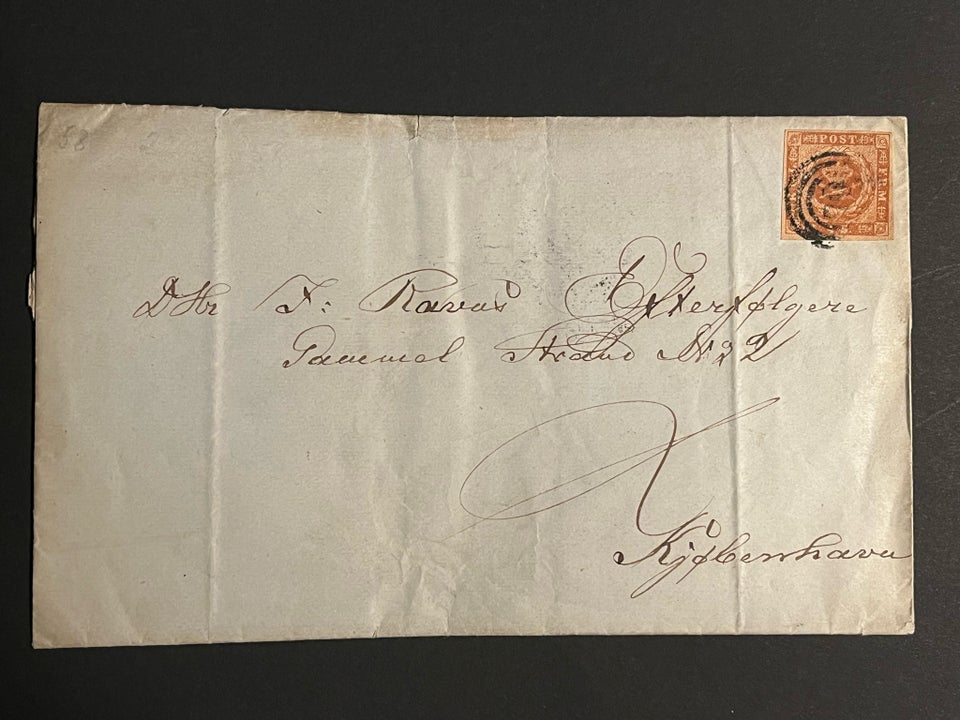 58
POST
FR.M.
DHr F: Ravns Efterfølgere
Gammel Strand No 2
Kjøbenhavn